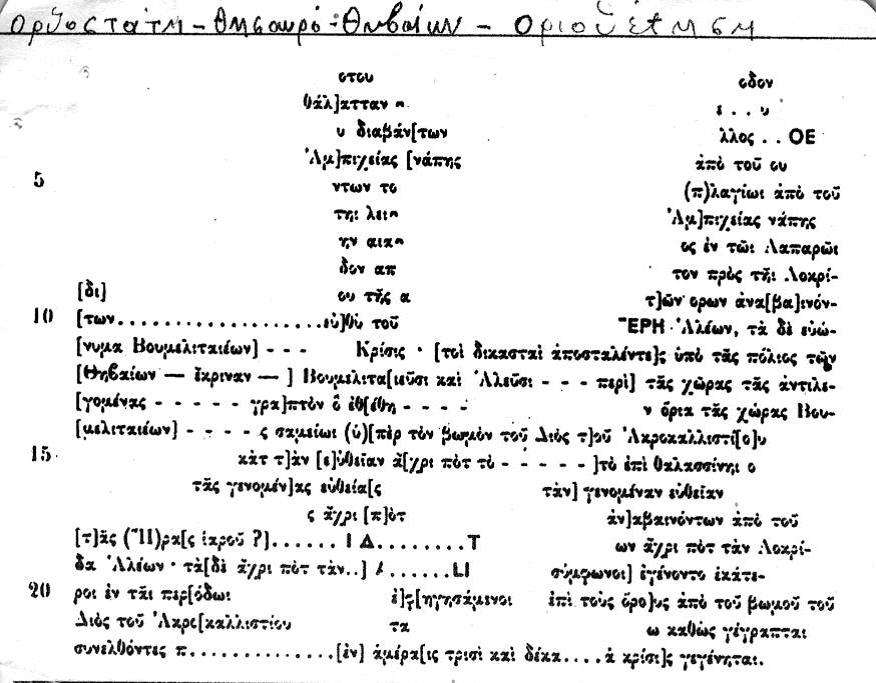 Ορθοστάτη - Θησαυρό - Θηβαίων - Οριοθέτηση
στου οδον
θάλ]ατταν ε . . . υ
υ διαβάν[των λλος . . ΟΕ
Ἀμ]πιχείας [νάπης ἀπὸ τοῦ ου
5 ντων το (π)λαγίωι ἀπὸ τοῦ
τηι λει Ἀμ]πιχείας νάπης
ην αικ ος ἐν τῶι Λαπαρῶι
δον απ τον πρὸς τῆι Λοκρί-
[δι] ου τῆς α τ]ῶν ορων ἀνα[βα]ινόν-
10 [των....................εὐ]θὺ τοῦ ΕΡΗ Ἀλέων, τὰ δὲ εὐώ-
[νυμα Βουμελιταιέων] - - - Κρίσις · [τοὶ δικασταὶ ἀποσταλέντε]ς ὑπὸ τᾶς πόλιος τῶν
[Θηβαίων — ἔκριναν — ] Βουμελιτα[ιεῦσι καὶ Ἀλεῦσι - - - περὶ] τᾶς χώρας τᾶς ἀντιλε-
[γομένας - - - - - γρα]πτὸν ὃ ἐθ[έθη - - - - ν ὅρια τᾶς χώρας Βου-
[μελιταιέων] - - - - ς σαμείωι (ὑ)[πὲρ τὸν βωμὸν τοῦ Διὸς τ]οῦ Ἀκροκαλλιστί[ο]υ
15 κὰτ τ]ὰν [ε]ὐθεῖαν ἄ[χρι πὸτ τὸ - - - - - ]τὸ ἐπὶ θαλασσίνηι ο
τᾶς γενομέν]ας εὐθεία[ς τὰν] γενομέναν εὐθεῖαν
ς ἄχρι [π]ὸτ ἀν]αβαινόντων ἀπὸ τοῦ
[τ]ᾶς (Ἥ)ρα[ς ἱαροῦ ?]....... Ι Δ.........Τ ων ἄχρι πὸτ τὰν Λοκρί-
δα Ἀλέων · τὰ[δὲ ἄχρι πὸτ τὰν..] .......LI σύμφωνοι] ἐγένοντο ἑκάτε-
20 ροι ἐν τᾶι περ[όδωι ἐ]ξ[ηγησάμενοι ἐπὶ τοὺς ὅρο]υς ἀπὸ τοῦ βωμοῦ τοῦ
Διὸς τοῦ Ἀκρο[καλλιστίου τα ω καθὼς γέγραπται
συνελθόντες π...............[ἐν] ἁμέρα[ις τρισὶ καὶ δέκα....ἁ κρίσι]ς γεγένηται.